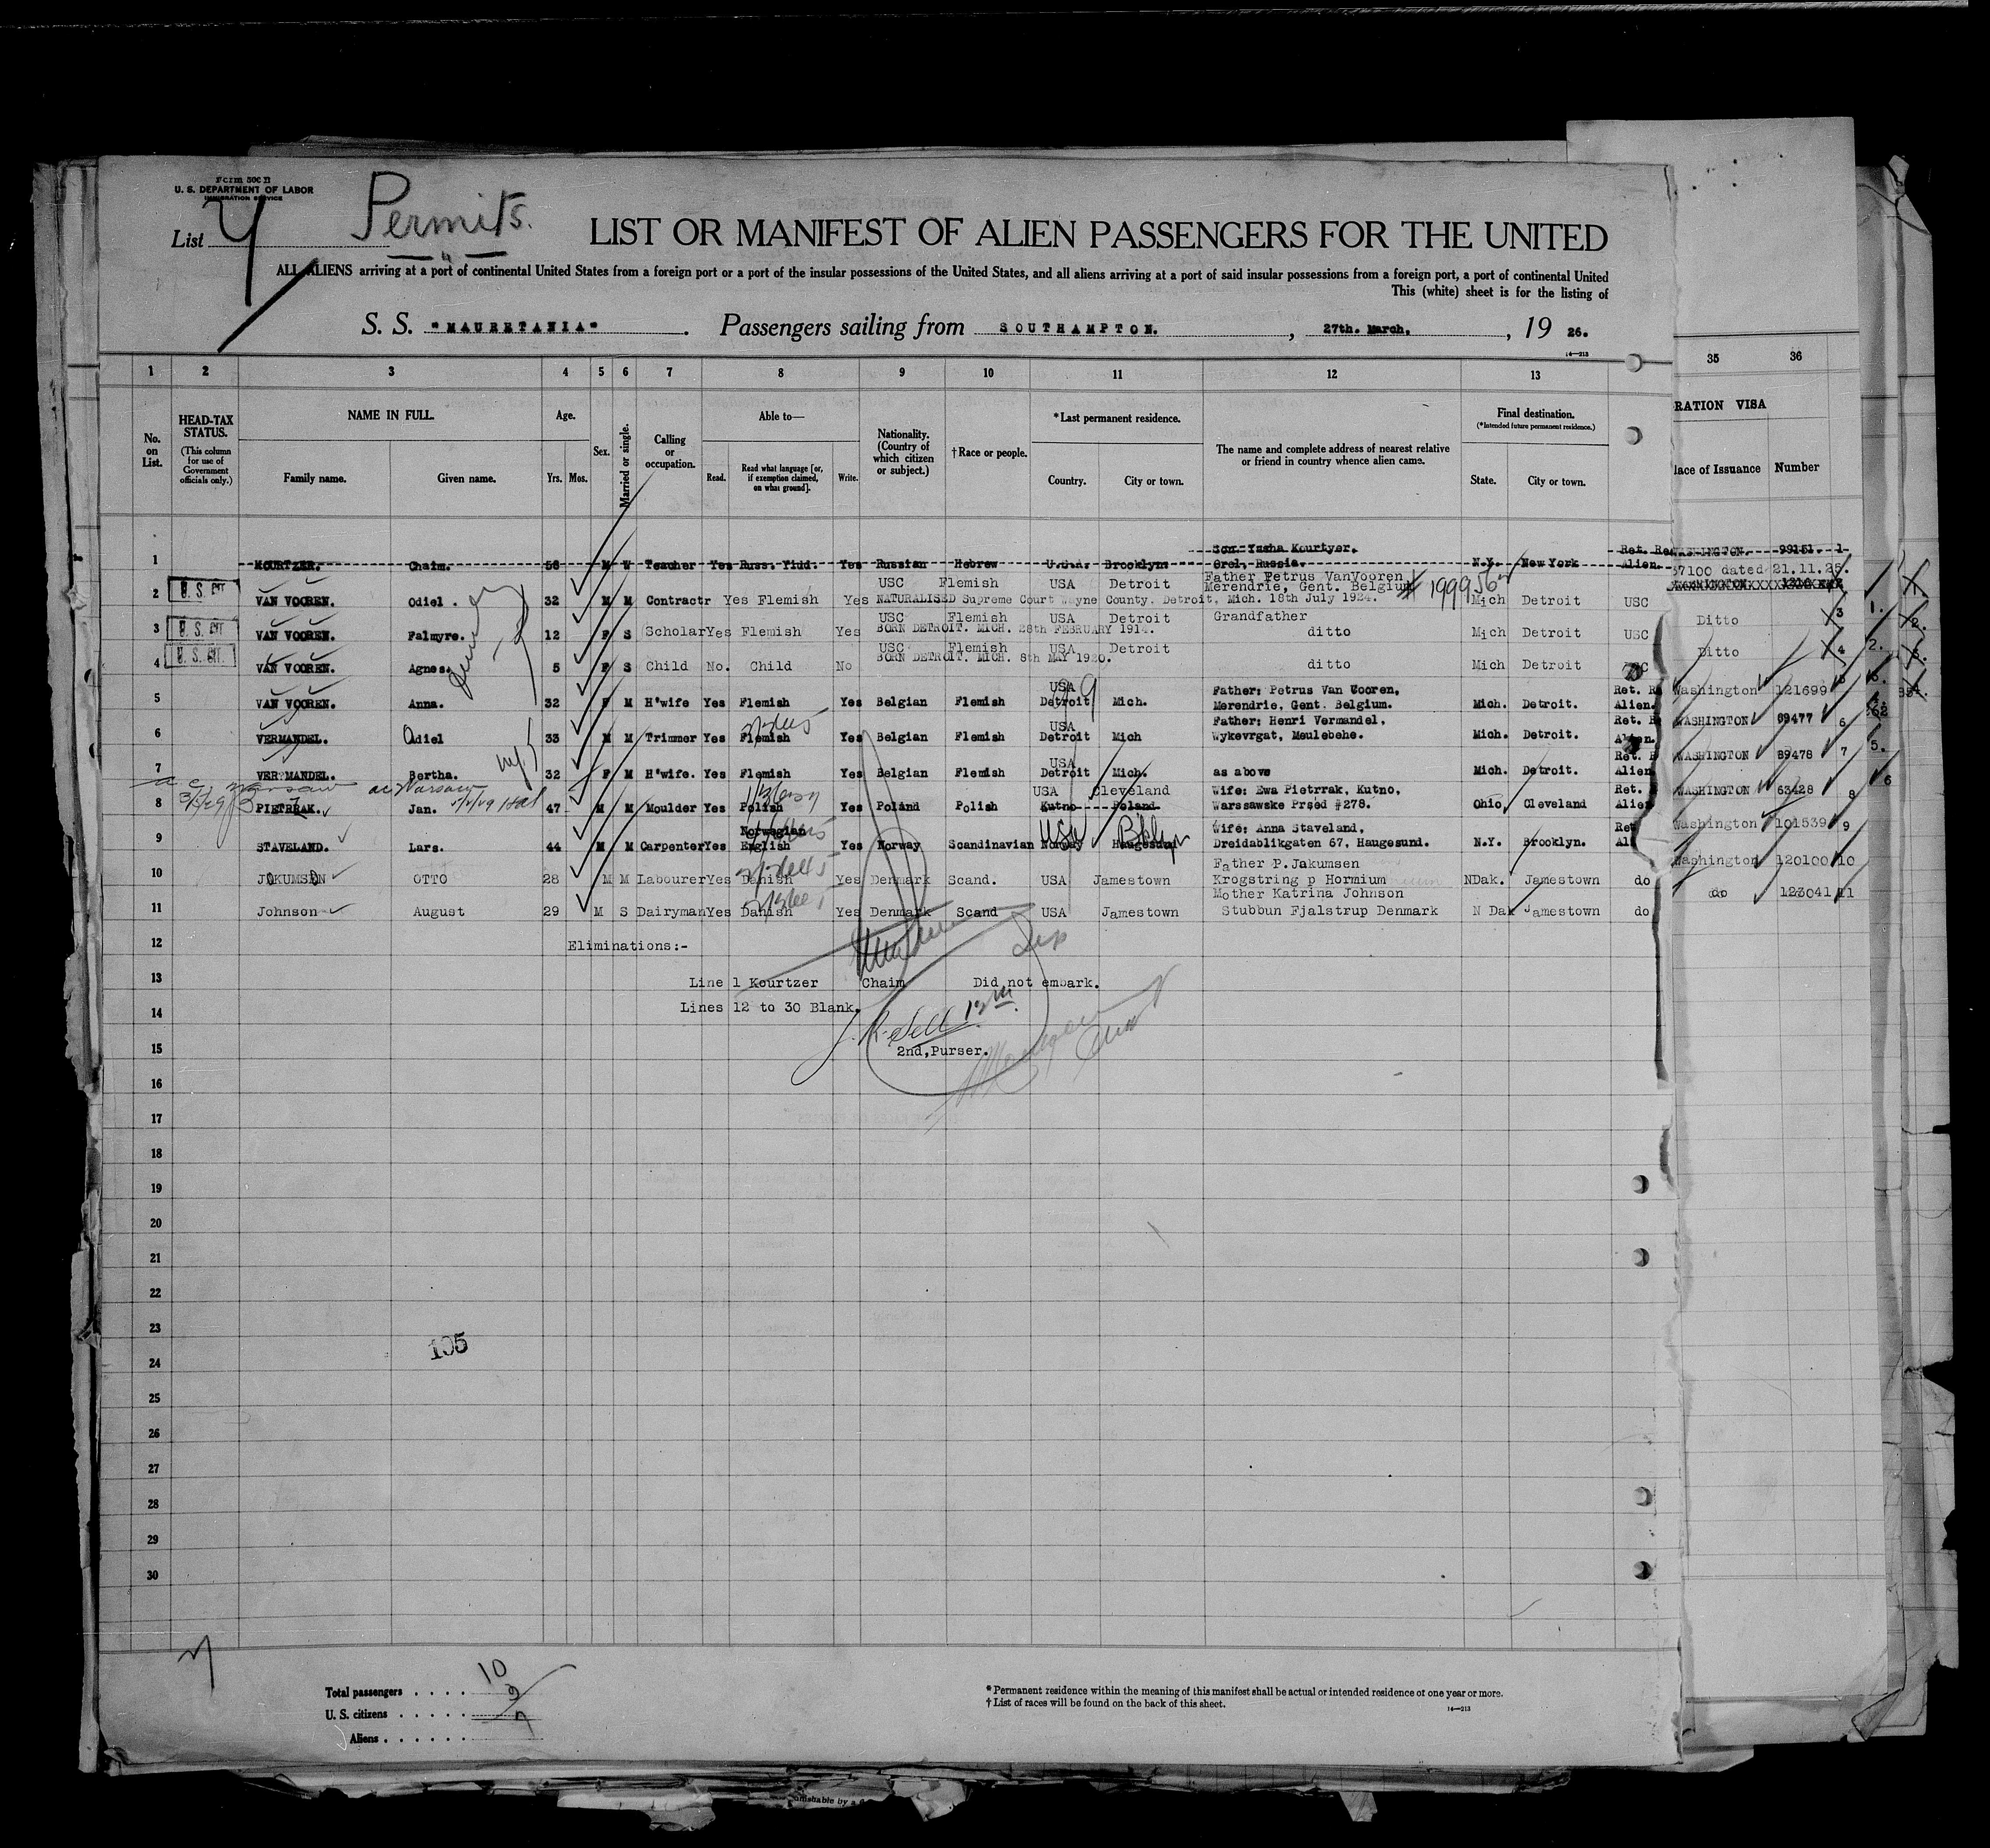 Form 500 B
U. S. DEPARTMENT OF LABOR
IMMIGRATION SERVICE
List
Permits.
LIST OR MANIFEST OF ALIEN PASSENGERS FOR THE UNITED
ALL ALIENS arriving at a port of continental United States from a foreign port or a port of the insular possessions of the United States, and all aliens arriving at a port of said insular possessions from a foreign port, a port of continental United
This (white) sheet is for the listing of
S. S. "MAURETANIA" . Passengers sailing from SOUTHAMPTON. , 27th. March. , 19 26.
14—213
1 2 3 4 5 6 7 8 9 10 11 12 13 35 36
No. on List.
HEAD-TAX STATUS.
(This column for use of Government officials only.)
NAME IN FULL.
Family name. Given name.
Age.
Yrs. Mos.
Sex.
Married or single.
Calling or occupation.
Able to—
Read. Read what language [or, if exemption claimed, on what ground]. Write.
Nationality. (Country of which citizen or subject.)
†Race or people.
*Last permanent residence.
Country. City or town.
The name and complete address of nearest relative or friend in country whence alien came.
Final destination.
(*Intended future permanent residence.)
State. City or town.
RATION VISA
lace of Issuance Number
Son: Yasha Kourtyer.
1 KOURTZER. Chaim. 56 M W Teacher Yes Russ. Yidd. Yes Russian Hebrew U.S.A. Brooklyn. Orel, Russia. N.Y. New York Ret. Re Alien. WASHINGTON. 99151. 1
37100 dated 21.11.25.
USC Flemish USA Detroit Father Petrus VanVooren
Merendrie, Gent. Belgium # 199956
2 U.S. CIT VAN VOOREN. Odiel . 32 M M Contractr Yes Flemish Yes NATURALISED Supreme Court Wayne County. Detroit, Mich. 18th July 1924. Mich Detroit USC
USC Flemish USA Detroit Grandfather
3 U.S. CIT VAN VOOREN. Palmyre. 12 F S Scholar Yes Flemish Yes BORN DETROIT. MICH. 28th FEBRUARY 1914. ditto Mich Detroit USC Ditto 3
USC Flemish USA Detroit
4 U.S. CIT. VAN VOOREN. Agnes. 5 F S Child No. Child No BORN DETROIT. MICH. 8th MAY 1920. ditto Mich Detroit USC Ditto 4
USA Father: Petrus Van Vooren, Ret. R
5 VAN VOOREN. Anna. 32 F M H'wife Yes Flemish Yes Belgian Flemish Detroit Mich. Merendrie, Gent. Belgium. Mich. Detroit. Alien. Washington 121699 5
USA Father: Henri Vermandel, Ret. R
6 VERMANDEL. Odiel 33 M M Trimmer Yes Flemish Yes Belgian Flemish Detroit Mich Wykevrgat, Meulebehe. Mich. Detroit. Alien. WASHINGTON 89477 6
USA Ret. R
7 VERMANDEL. Bertha. 32 F M H'wife. Yes Flemish Yes Belgian Flemish Detroit Mich. as above Mich. Detroit. Alien WASHINGTON 89478 7
USA Cleveland Wife: Ewa Pietrrak, Kutno, Ret.
8 PIETRRAK. Jan. 47 M M Moulder Yes Polish Yes Poland Polish Kutno Poland Warssawske Prsed #278. Ohio, Cleveland Alie WASHINGTON 63428 8
Norwegian USA Bklyn Wife: Anna Staveland, Ret
9 STAVELAND. Lars. 44 M M Carpenter Yes English Yes Norway Scandinavian Norway Haugesund Dreidablikgaten 67, Haugesund. N.Y. Brooklyn. Al Washington 101539 9
Father P.Jakumsen
10 JAKUMSEN OTTO 28 M M Labourer Yes Danish Yes Denmark Scand. USA Jamestown Krogstring p Hormium NDak. Jamestown do Washington 120100 10
Mother Katrina Johnson
11 Johnson August 29 M S Dairyman Yes Danish Yes Denmark Scand USA Jamestown Stubbun Fjalstrup Denmark N Dak Jamestown do do 123041 11
12 Eliminations:-
13 Line 1 Kourtzer Chaim Did not embark.
14 Lines 12 to 30 Blank.
15 2nd,Purser.
16
17
18
19
20
21
22
23
105
24
25
26
27
28
29
30
Total passengers . . . . 10
U. S. citizens . . . . . 3
Aliens . . . . . . 7
* Permanent residence within the meaning of this manifest shall be actual or intended residence of one year or more.
† List of races will be found on the back of this sheet.
14—213